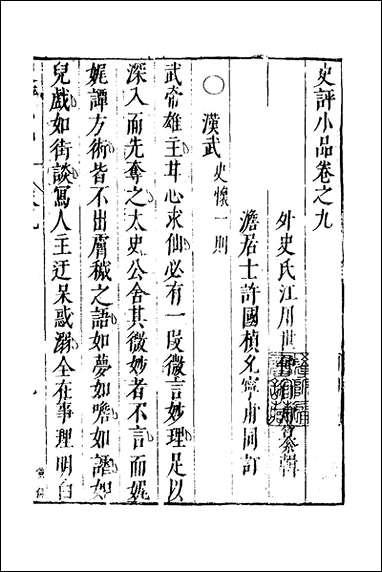 史評小品卷之九
外史氏江用世
澹居士許國楨允寧甫同訂
○漢武 史懷一則
武帝雄主其心求仙必有一段微言妙理足以
深入而先奪之太史公舍其微妙者不言而娓
娓譚方術皆不出膚穢之語如夢如囈如謔如
兒戲如街談寫人主迂呆惑溺全在事理明白